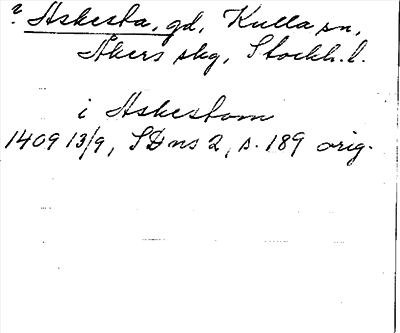 ? Askesta, gd, Kulla sn,
Åkers skg, Stockh. l.
i Askestom
1409 13/9, SD ns 2, s. 189 orig.